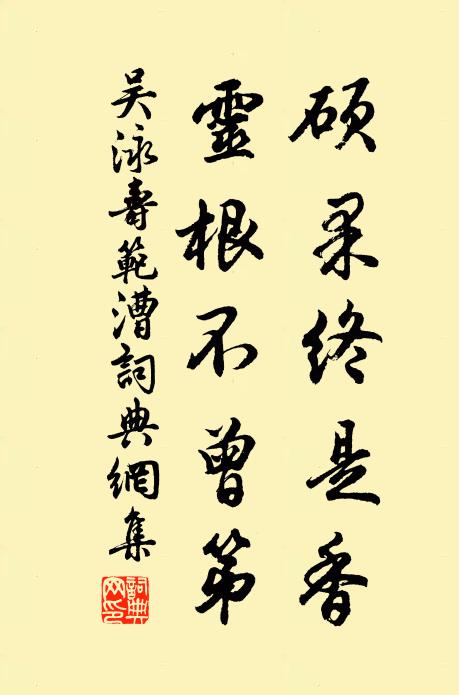 碩果終是香
靈根不曾第
吳泳壽範漕詞典網集
詞典网印